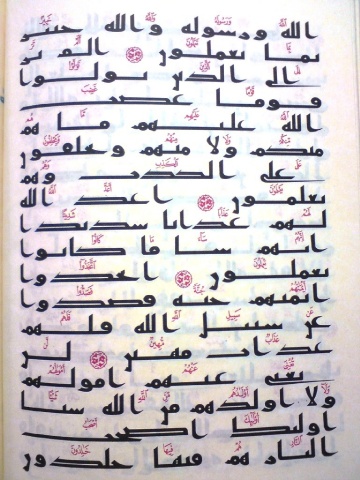 الله ورسوله والله خبير
بما تعملون ۝ الم تر
الى الذين تولوا
قوما غضب
الله عليهم ما هم
منكم ولا منهم ويحلفون
على الكذب وهم
يعلمون ۝ اعد الله
لهم عذابا شديدا
انهم سا ما كانوا
يعملون ۝ اتخذوا
ايمنهم جنة فصدوا
عن سبيل الله فلهم
عذاب مهين ۝ لن
تغني عنهم امولهم
ولا اولدهم من الله شيا
اوليك اصحب
النار هم فيها خلدون